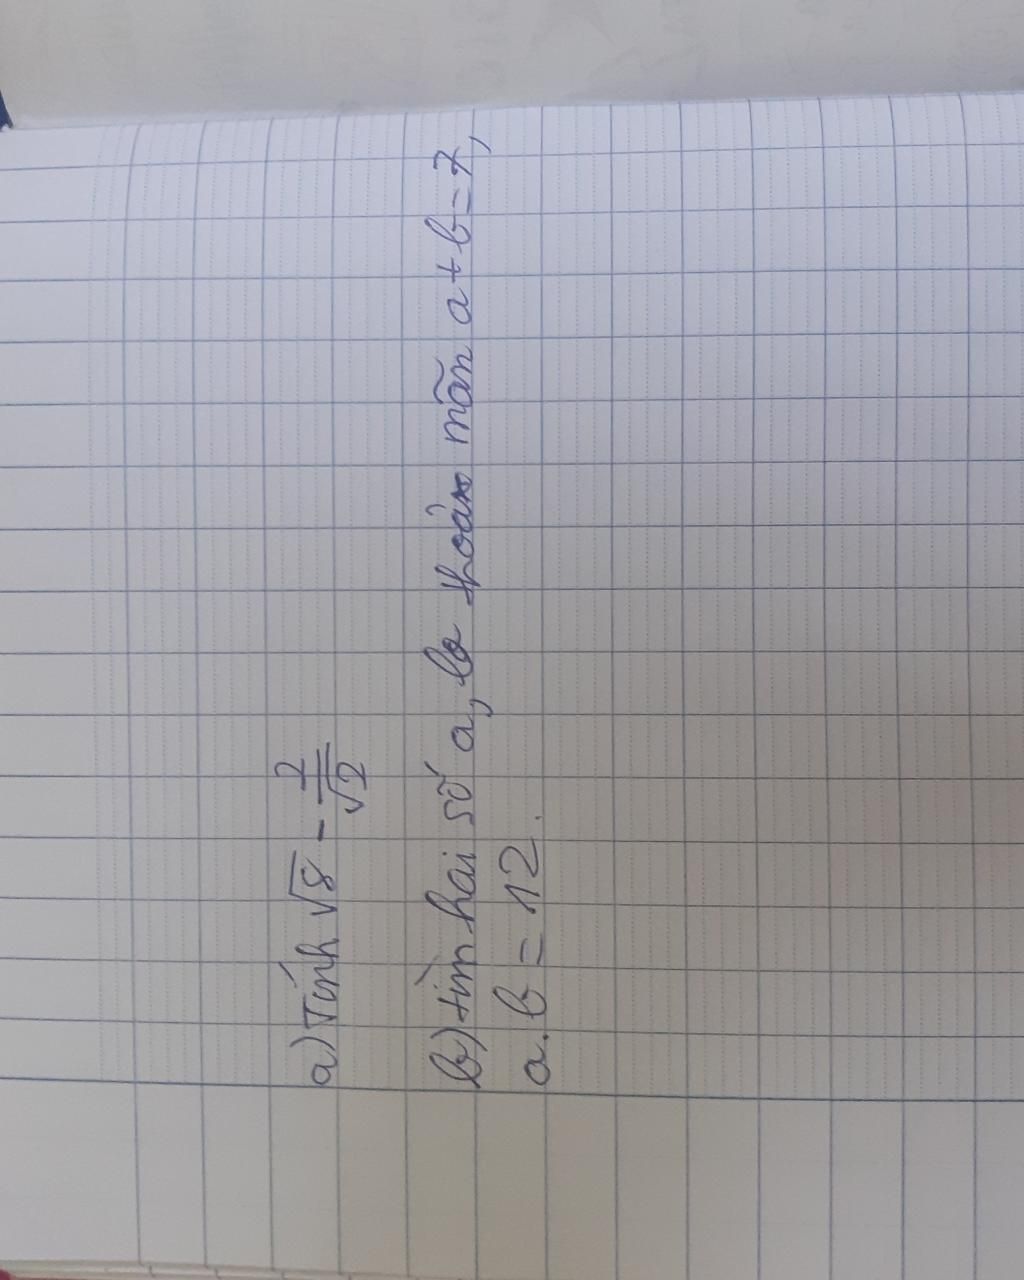 a) Tính √8 - 2/√2
b) tìm hai số a, b thoản mãn a + b = 7,
a. b = 12.